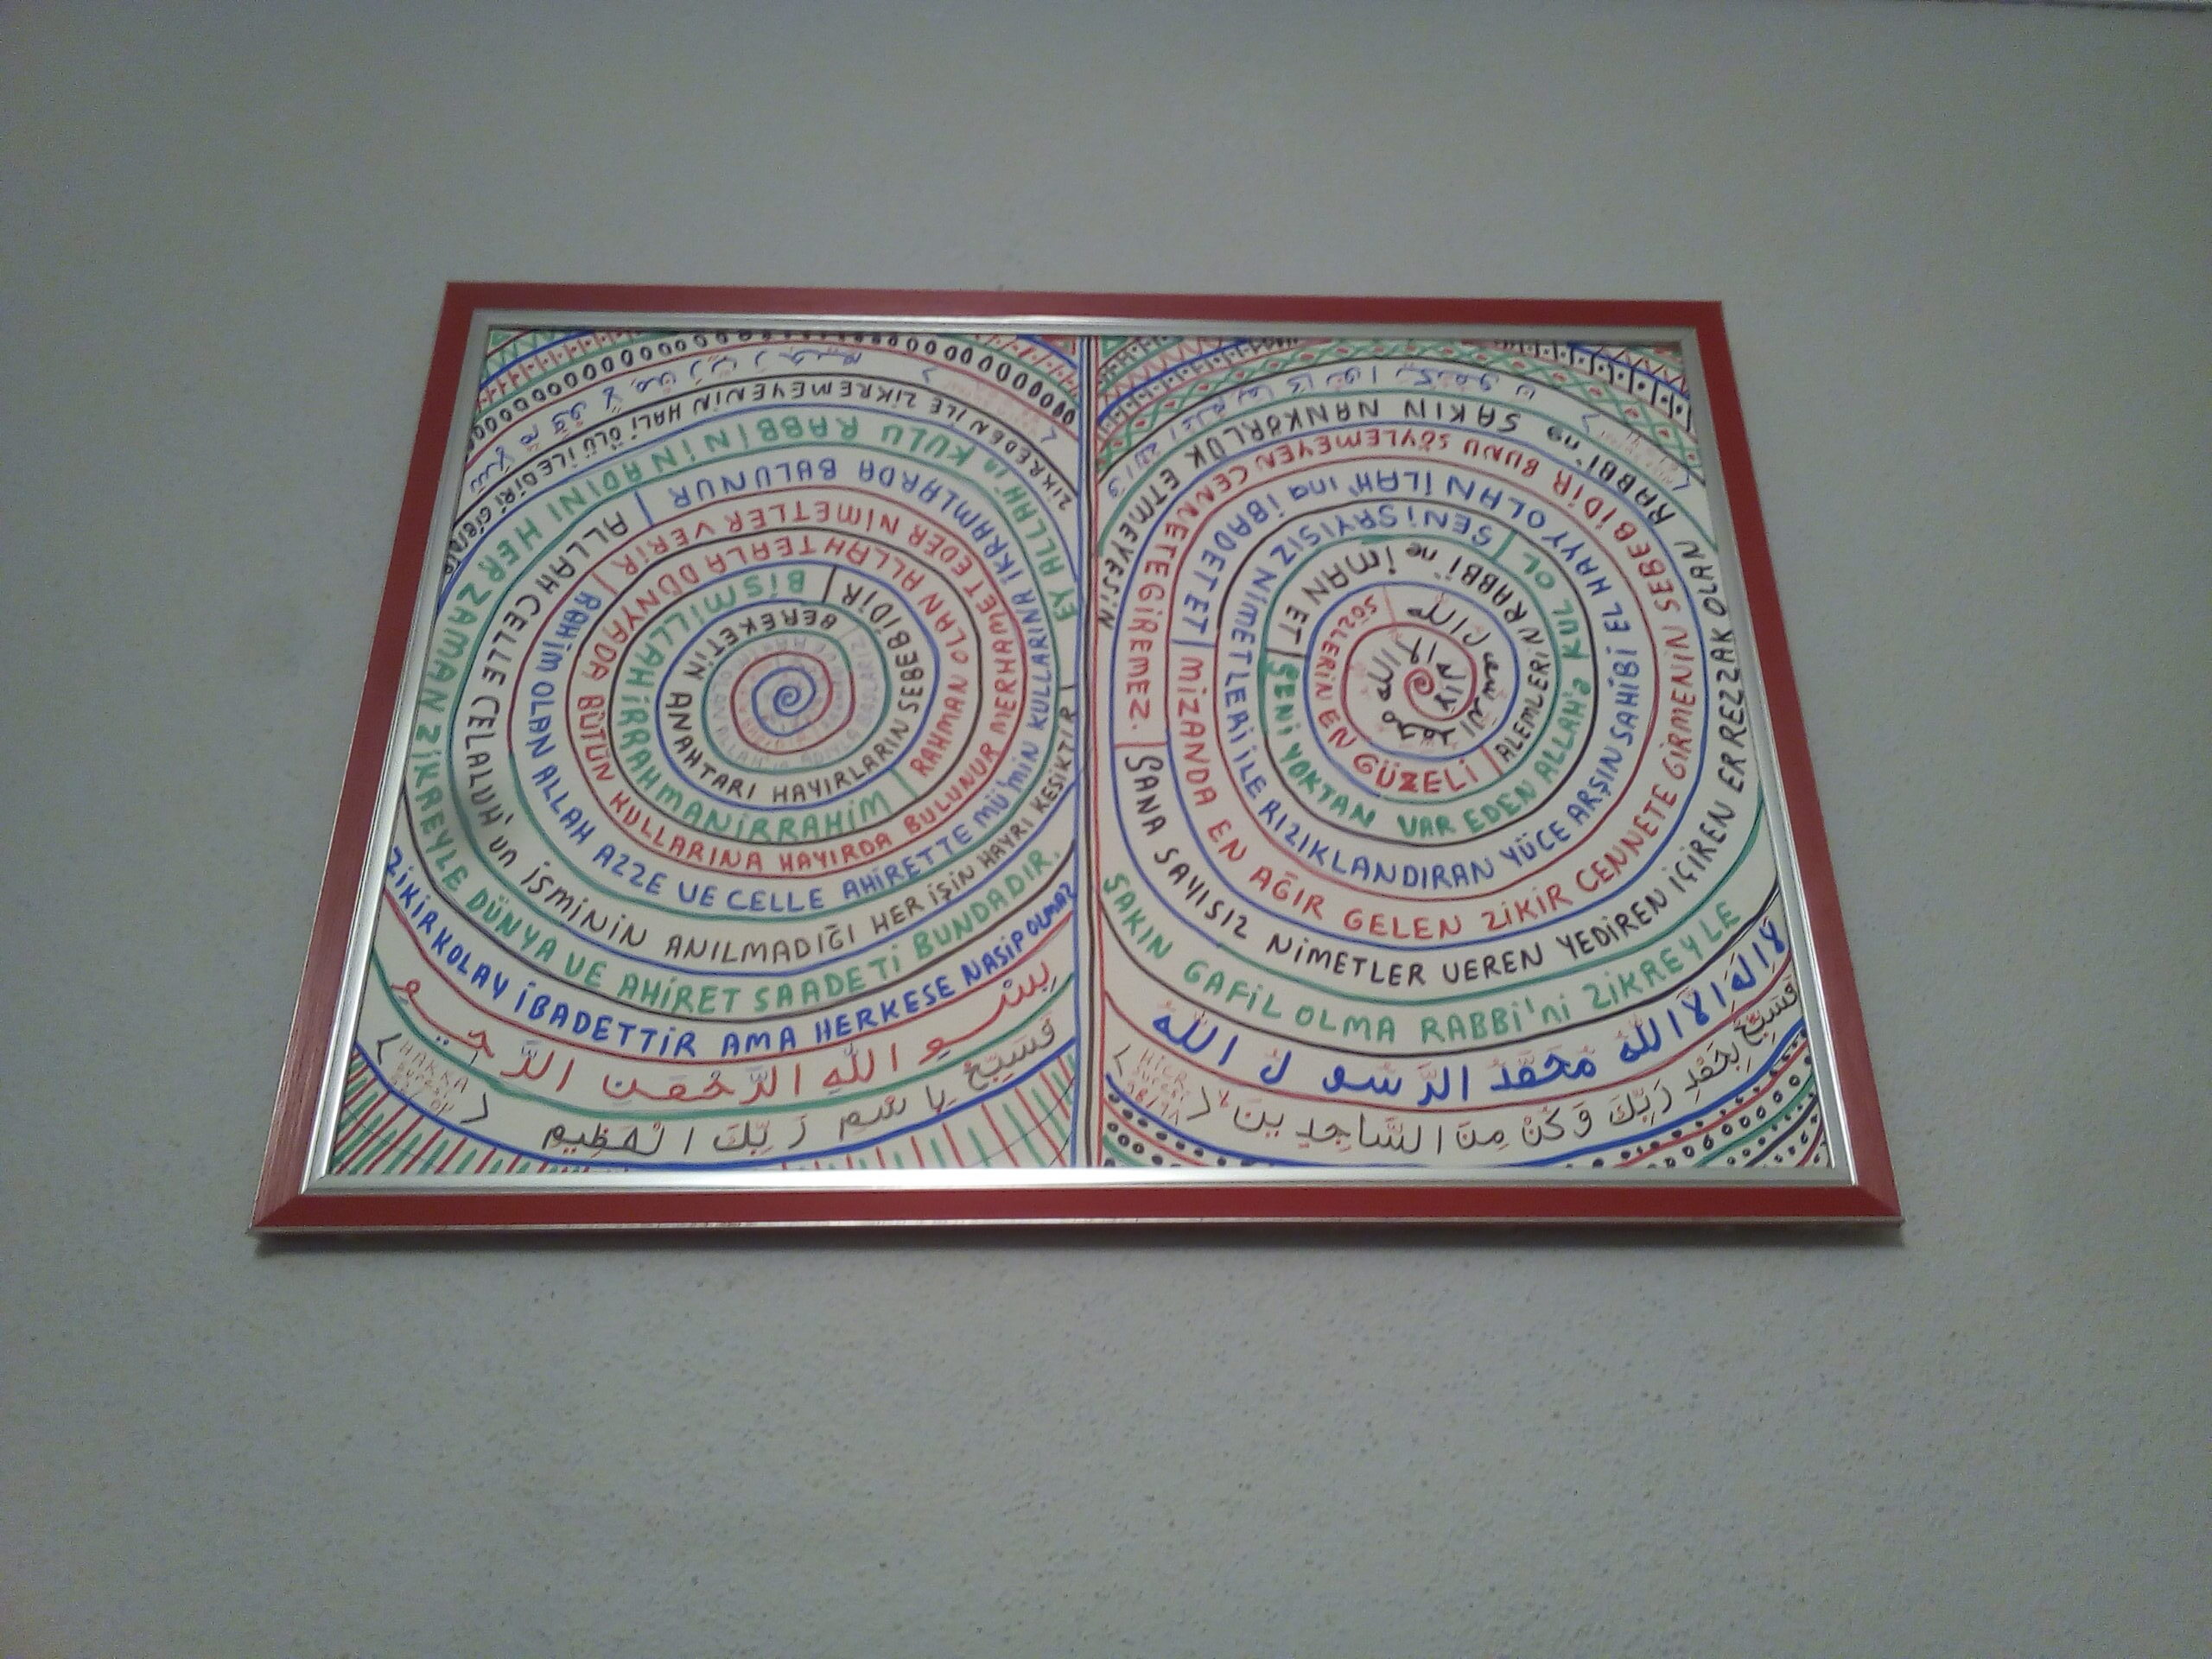 BEREKETİN ANAHTARI HAYIRLARIN SEBEBİDİR
BİSMİLLAHİRRAHMANİRRAHİM
RAHMAN OLAN ALLAH TEALA DÜNYADA BÜTÜN KULLARINA HAYIRDA BULUNUR MERHAMET EDER NİMETLER VERİR
RAHİM OLAN ALLAH AZZE VE CELLE AHİRETTE MÜ'MİN KULLARINA İKRAMLARDA BULUNUR
ALLAH CELLE CELALUH'un İSMİNİN ANILMADIĞI HER İŞİN HAYRI KESİKTİR
EY ALLAH'ın KULU RABBİNİN ADINI HER ZAMAN ZİKREYLE DÜNYA VE AHİRET SAADETİ BUNDADIR.
ZİKREDEN İLE ZİKREMEYENİN HALİ ÖLÜ İLE DİRİ GİBİDİR
ZİKİR KOLAY İBADETTİR AMA HERKESE NASİP OLMAZ
بِسْمِ اللهِ الرَّحْمَنِ الرَّحِيمِ
فَسَبِّحْ بِاسْمِ رَبِّكَ الْعَظِيمِ
HAKKA
SÖZLERİN EN GÜZELİ
ALEMLERİN RABBİ'ne İMAN ET
SENİ YOKTAN VAR EDEN ALLAH'a KUL OL
SENİ SAYISIZ NİMETLERİ İLE RIZIKLANDIRAN YÜCE ARŞIN SAHİBİ EL HAYY OLAN İLAH'ına İBADET ET
MİZANDA EN AĞIR GELEN ZİKİR CENNETE GİRMENİN SEBEBİDİR BUNU SÖYLEMEYEN CENNETE GİREMEZ.
SANA SAYISIZ NİMETLER VEREN YEDİREN İÇİREN ER REZZAK OLAN RABBİ'ne SAKIN NANKÖRLÜK ETMEYESİN
SAKIN GAFİL OLMA RABBİ'ni ZİKREYLE
لَا إِلَهَ إِلَّا اللهُ مُحَمَّدُ الرَّسُولُ اللهُ
فَسَبِّحْ بِحَمْدِ رَبِّكَ وَكُنْ مِنَ السَّاجِدِينَ
HİCR